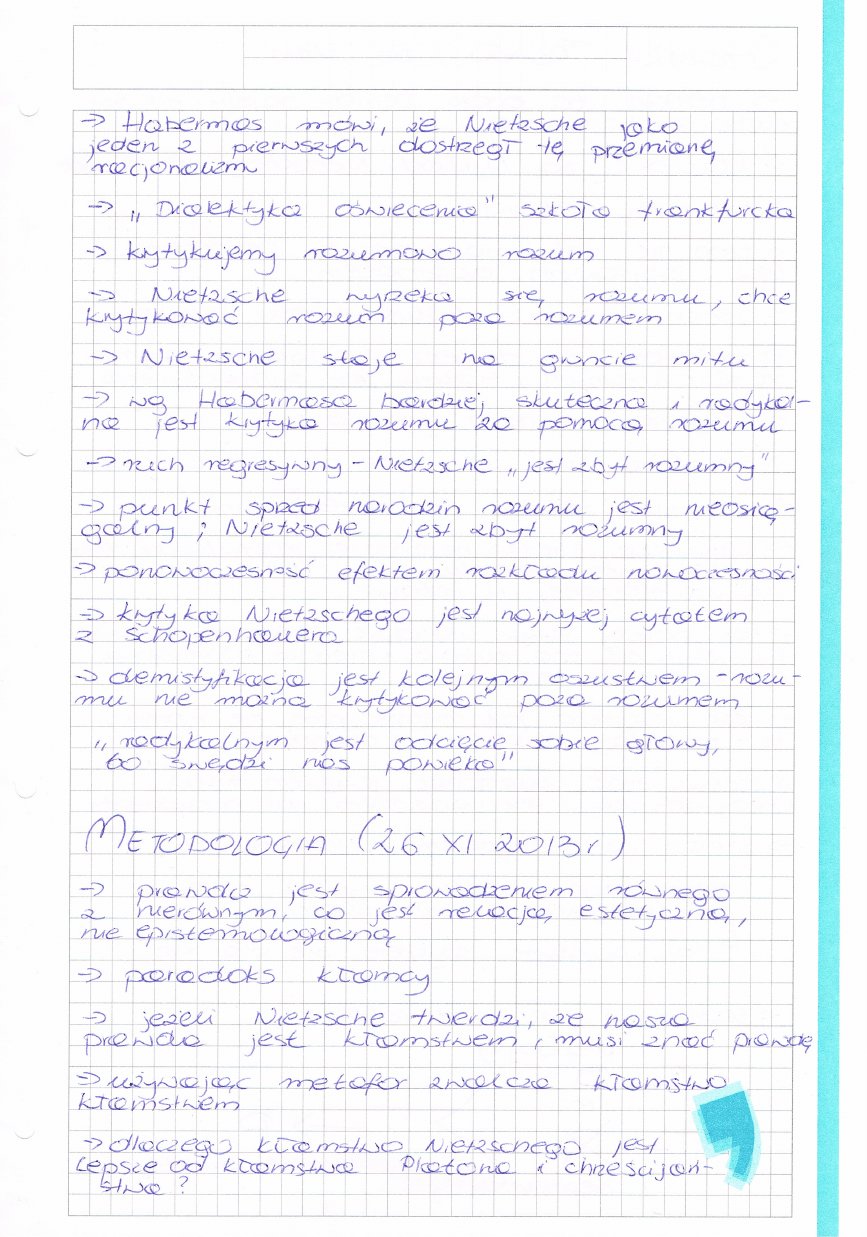 → Habermas mówi, że Nietzsche jako
jeden z pierwszych dostrzegł tę przemianę
racjonalizm
→ „Dialektyka oświecenia" szkoła frankfurcka
→ krytykujemy rozumowo rozum
→ Nietzsche wyrzeka się rozumu, chce
krytykować rozum poza rozumem
→ Nietzsche staje na gruncie mitu
→ wg Habermasa bardziej skuteczna i radykal-
na jest krytyka rozumu za pomocą rozumu
→ ruch regresywny – Nietzsche „jest zbyt rozumny"
→ punkt sprzed narodzin rozumu jest nieosią-
galny; Nietzsche jest zbyt rozumny
→ ponowoczesność efektem rozkładu nowoczesności
→ krytyka Nietzschego jest najwyżej cytatem
z Schopenhauera
→ demistyfikacja jest kolejnym oszustwem – rozu-
mu nie można krytykować poza rozumem
„radykalnym jest odcięcie sobie głowy,
bo swędzi nas powieka"
METODOLOGIA (26 XI 2013r)
→ prawda jest sprowadzeniem równego
z nierównym, co jest relacją estetyczną,
nie epistemologiczną
→ paradoks kłamcy
→ jeżeli Nietzsche twierdzi, że nasza
prawda jest kłamstwem, musi znać prawdę
→ używając metafor zwalcza kłamstwo
kłamstwem
→ dlaczego kłamstwo Nietzschego jest
lepsze od kłamstwa Platona i chrześcijań-
stwa?